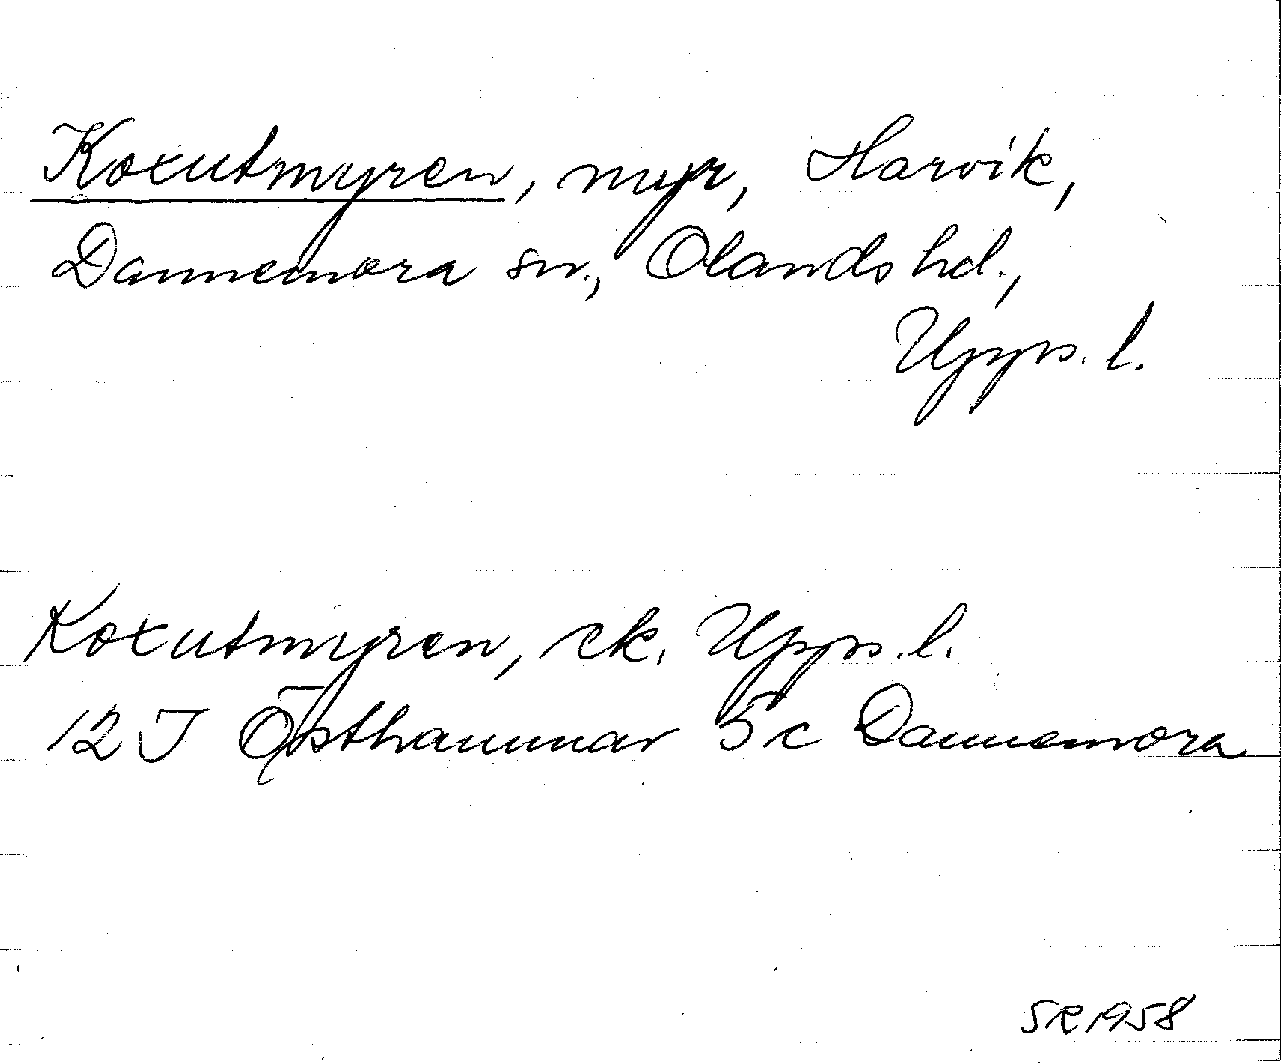 Koxutmyren, myr, Harvik,
Dannemora sn., Olands hd.,
Upps. l.
Koxutmyren, ek. Upps. l.
12 I Östhammar 5 c Dannemora
SR 1958